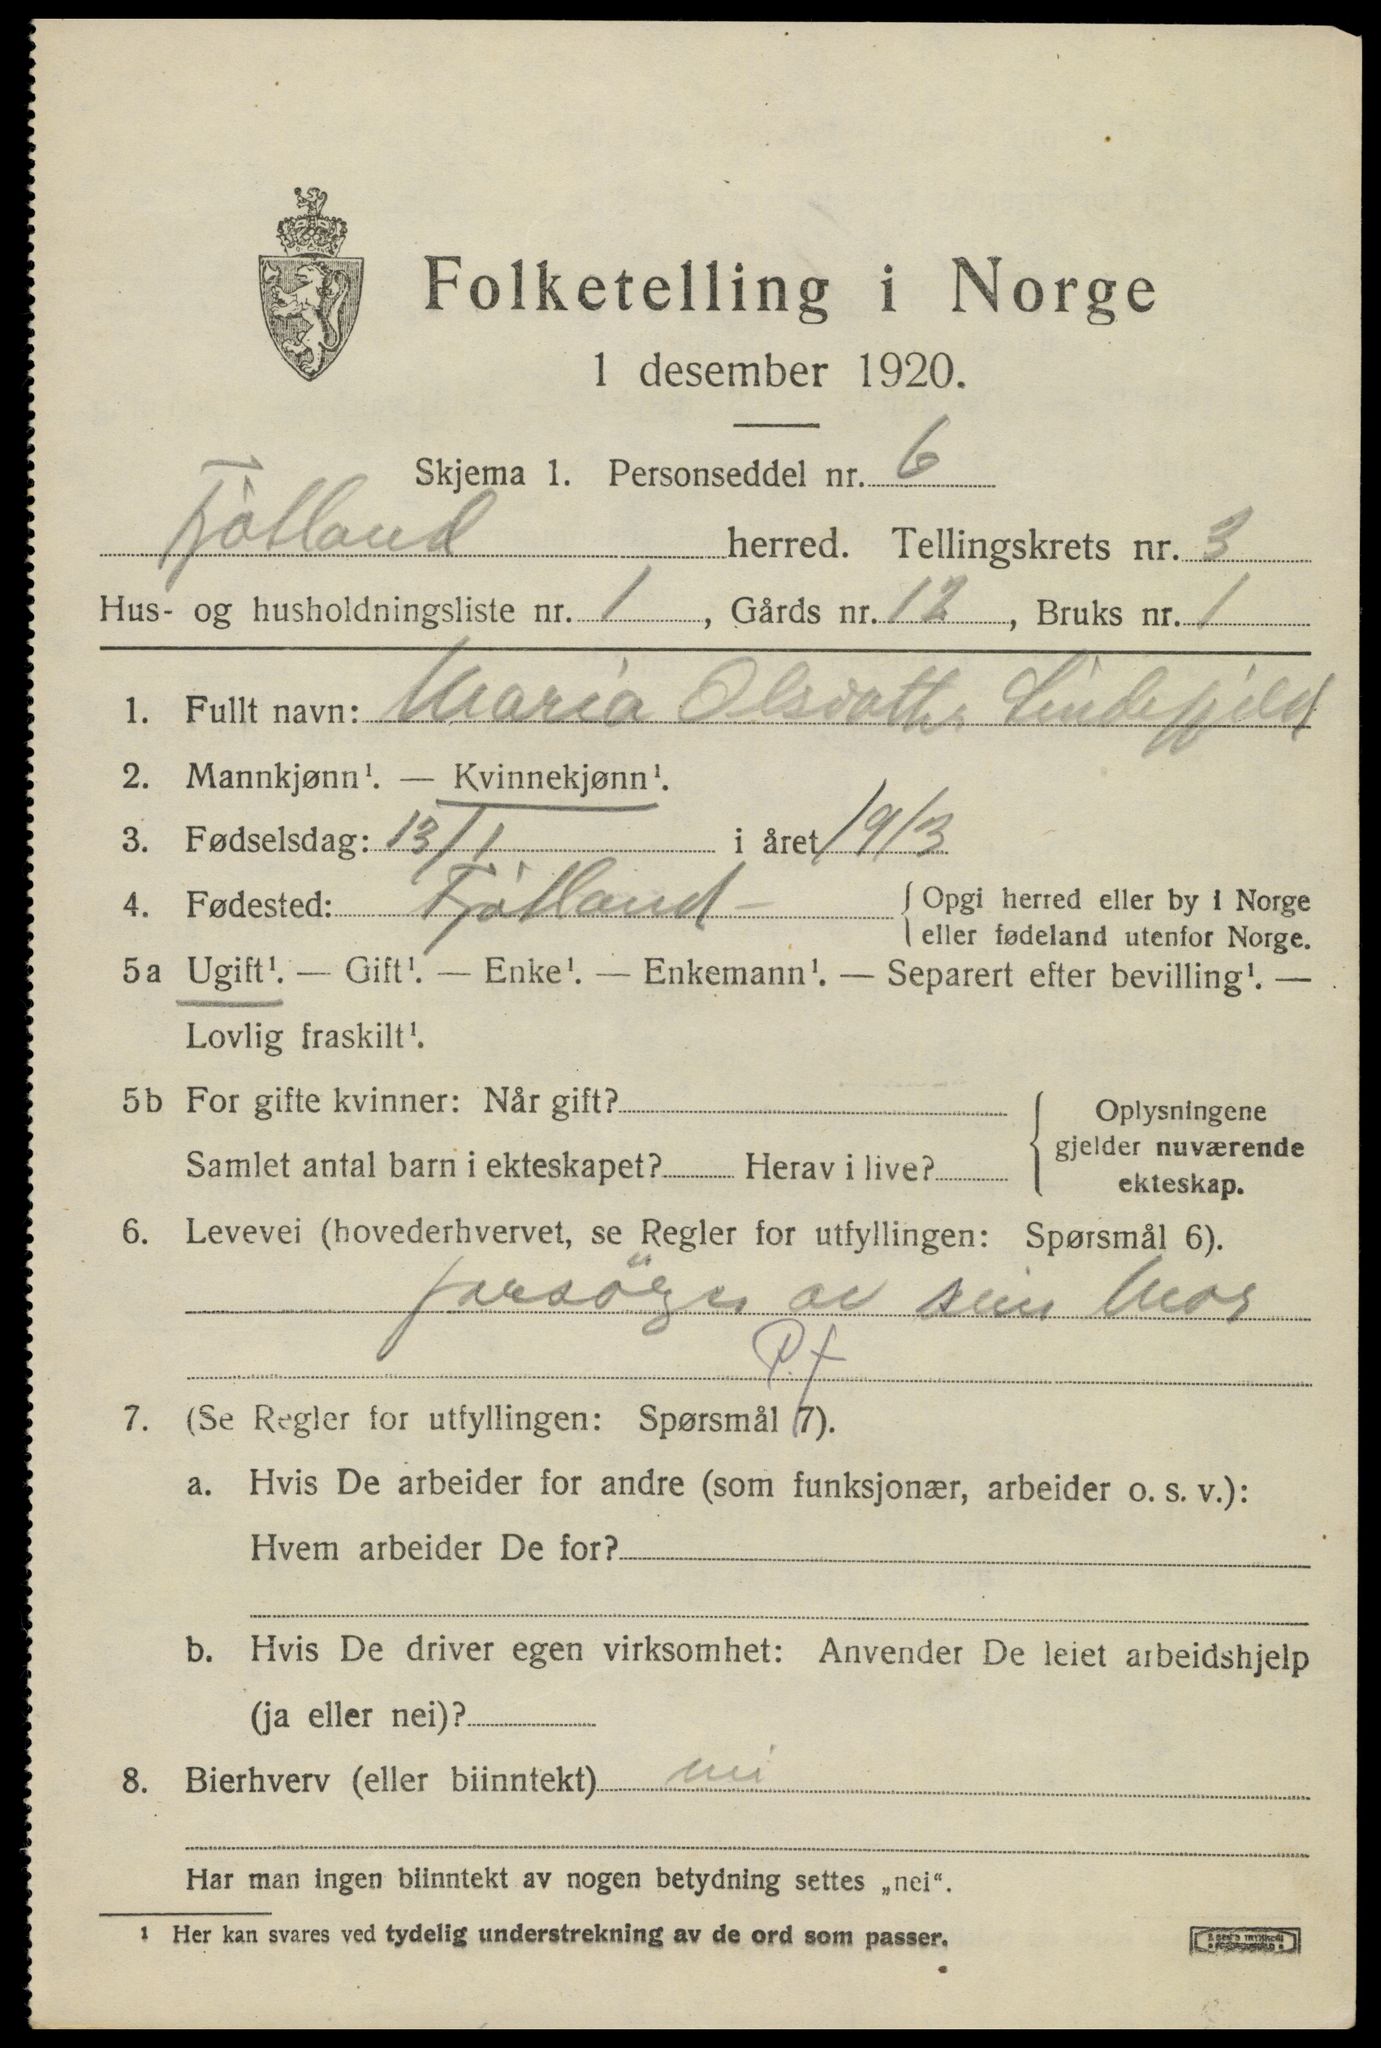 Folketelling i Norge
1 desember 1920.
Skjema 1. Personseddel nr. 6
Fjötland herred. Tellingskrets nr. 3
Hus- og husholdningsliste nr. 1, Gårds nr. 12, Bruks nr. 1
1. Fullt navn: Maria Olsdatter Lindefjeld
2. Mannkjønn¹. — Kvinnekjønn¹.
3. Fødselsdag: 13/1 i året 1913
4. Fødested: Fjötland - { Opgi herred eller by i Norge
eller fødeland utenfor Norge.
5a Ugift¹. — Gift¹. — Enke¹. — Enkemann¹. — Separert efter bevilling¹. —
Lovlig fraskilt¹.
5b For gifte kvinner: Når gift? { Oplysningene
gjelder nuværende
Samlet antal barn i ekteskapet? Herav i live? ekteskap.
6. Levevei (hovederhvervet, se Regler for utfyllingen: Spørsmål 6).
forsörges av sin Mor
P.f
7. (Se Regler for utfyllingen: Spørsmål 7).
a. Hvis De arbeider for andre (som funksjonær, arbeider o. s. v.):
Hvem arbeider De for?
b. Hvis De driver egen virksomhet: Anvender De leiet arbeidshjelp
(ja eller nei)?
8. Bierhverv (eller biinntekt) nei
Har man ingen biinntekt av nogen betydning settes „nei“.
¹ Her kan svares ved tydelig understrekning av de ord som passer.